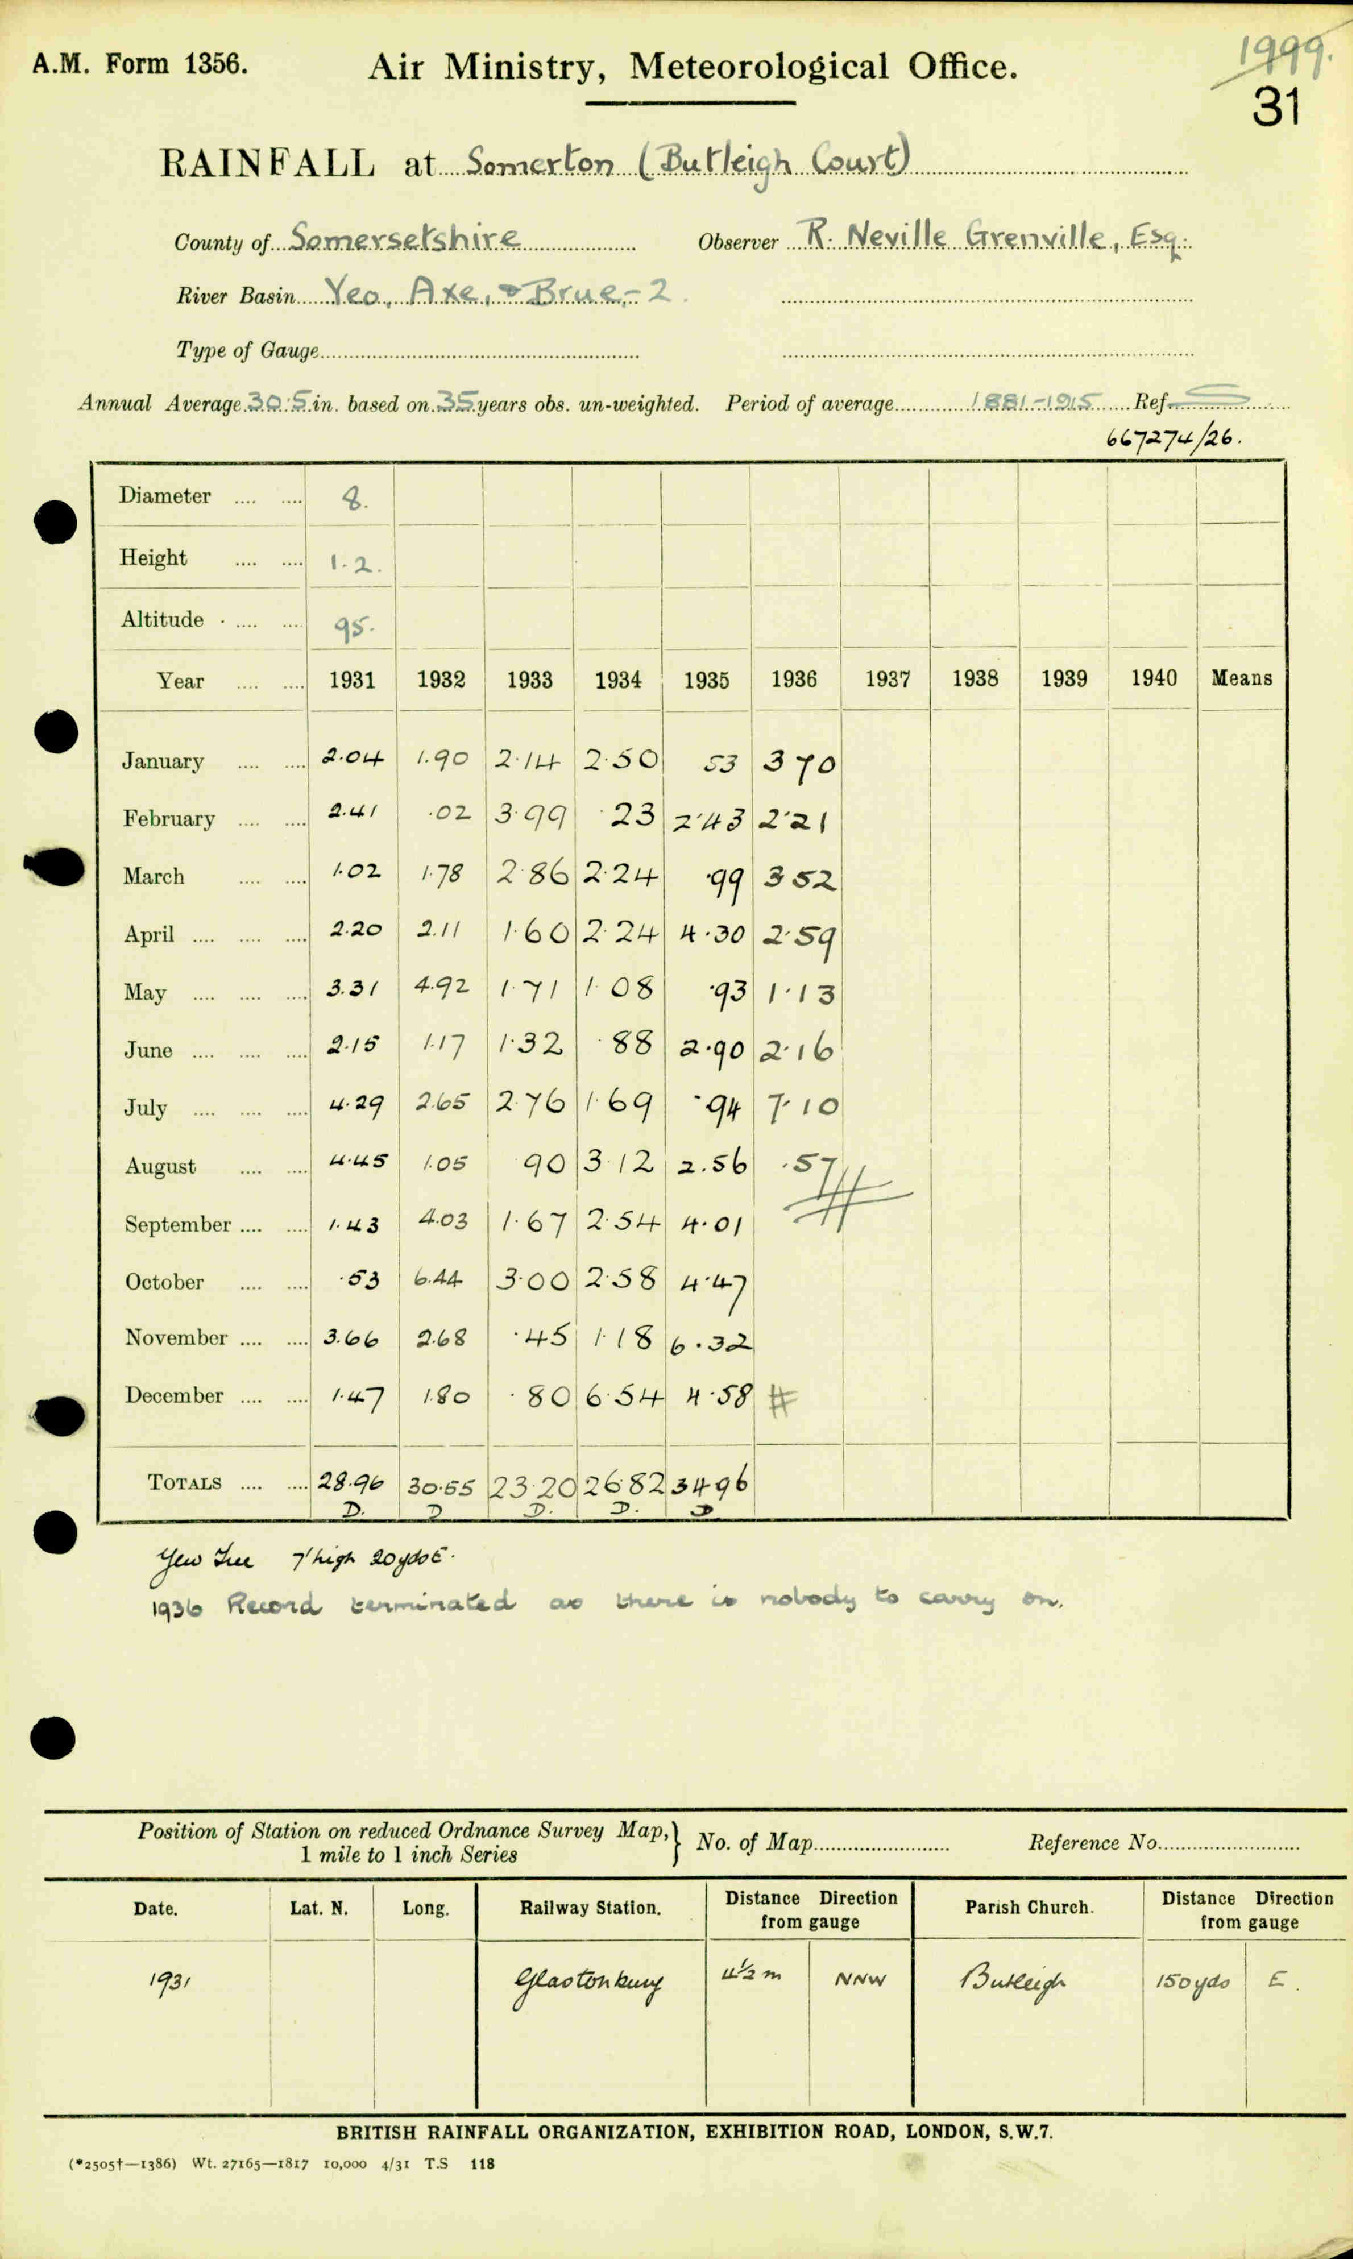 A.M. Form 1356.
Air Ministry, Meteorological Office.
1999.
31
RAINFALL at Somerton (Butleigh Court)
County of Somersetshire Observer R. Neville Grenville, Esq.
River Basin Yeo, Axe, & Brue,-2
Type of Gauge
Annual Average 30.5 in. based on 35 years obs. un-weighted. Period of average 1881-1915 Ref. S
667274/26.
Diameter .... .... 8.
Height .... .... 1.2.
Altitude .... .... 95.
Year .... .... 1931 1932 1933 1934 1935 1936 1937 1938 1939 1940 Means
January .... .... 2.04 1.90 2.14 2.50 53 3 70
February .... .... 2.41 .02 3.99 .23 2.43 2.21
March .... .... 1.02 1.78 2.86 2.24 .99 3 52
April .... .... .... 2.20 2.11 1.60 2.24 4.30 2.59
May .... .... .... 3.31 4.92 1.71 1.08 .93 1.13
June .... .... .... 2.15 1.17 1.32 .88 2.90 2.16
July .... .... .... 4.29 2.65 2.76 1.69 .94 7.10
August .... .... 4.45 1.05 90 3.12 2.56 .57
September .... .... 1.43 4.03 1.67 2.54 4.01
October .... .... .53 6.44 3.00 2.58 4.47
November .... .... 3.66 2.68 .45 1.18 6.32
December .... .... 1.47 1.80 .80 6.54 4.58 #
TOTALS .... .... 28.96 30.55 23.20 26.82 34.96
D. D D. D. D
Yew Tree 7' high 20yds E.
1936 Record terminated as there is nobody to carry on.
Position of Station on reduced Ordnance Survey Map,} No. of Map Reference No.
1 mile to 1 inch Series
Date. Lat. N. Long. Railway Station. Distance Direction from gauge Parish Church. Distance Direction from gauge
1931 Glastonbury 4½ m NNW Butleigh 150 yds E.
BRITISH RAINFALL ORGANIZATION, EXHIBITION ROAD, LONDON, S.W.7.
(*2505†—1386) Wt. 27165—1817 10,000 4/31 T.S 118